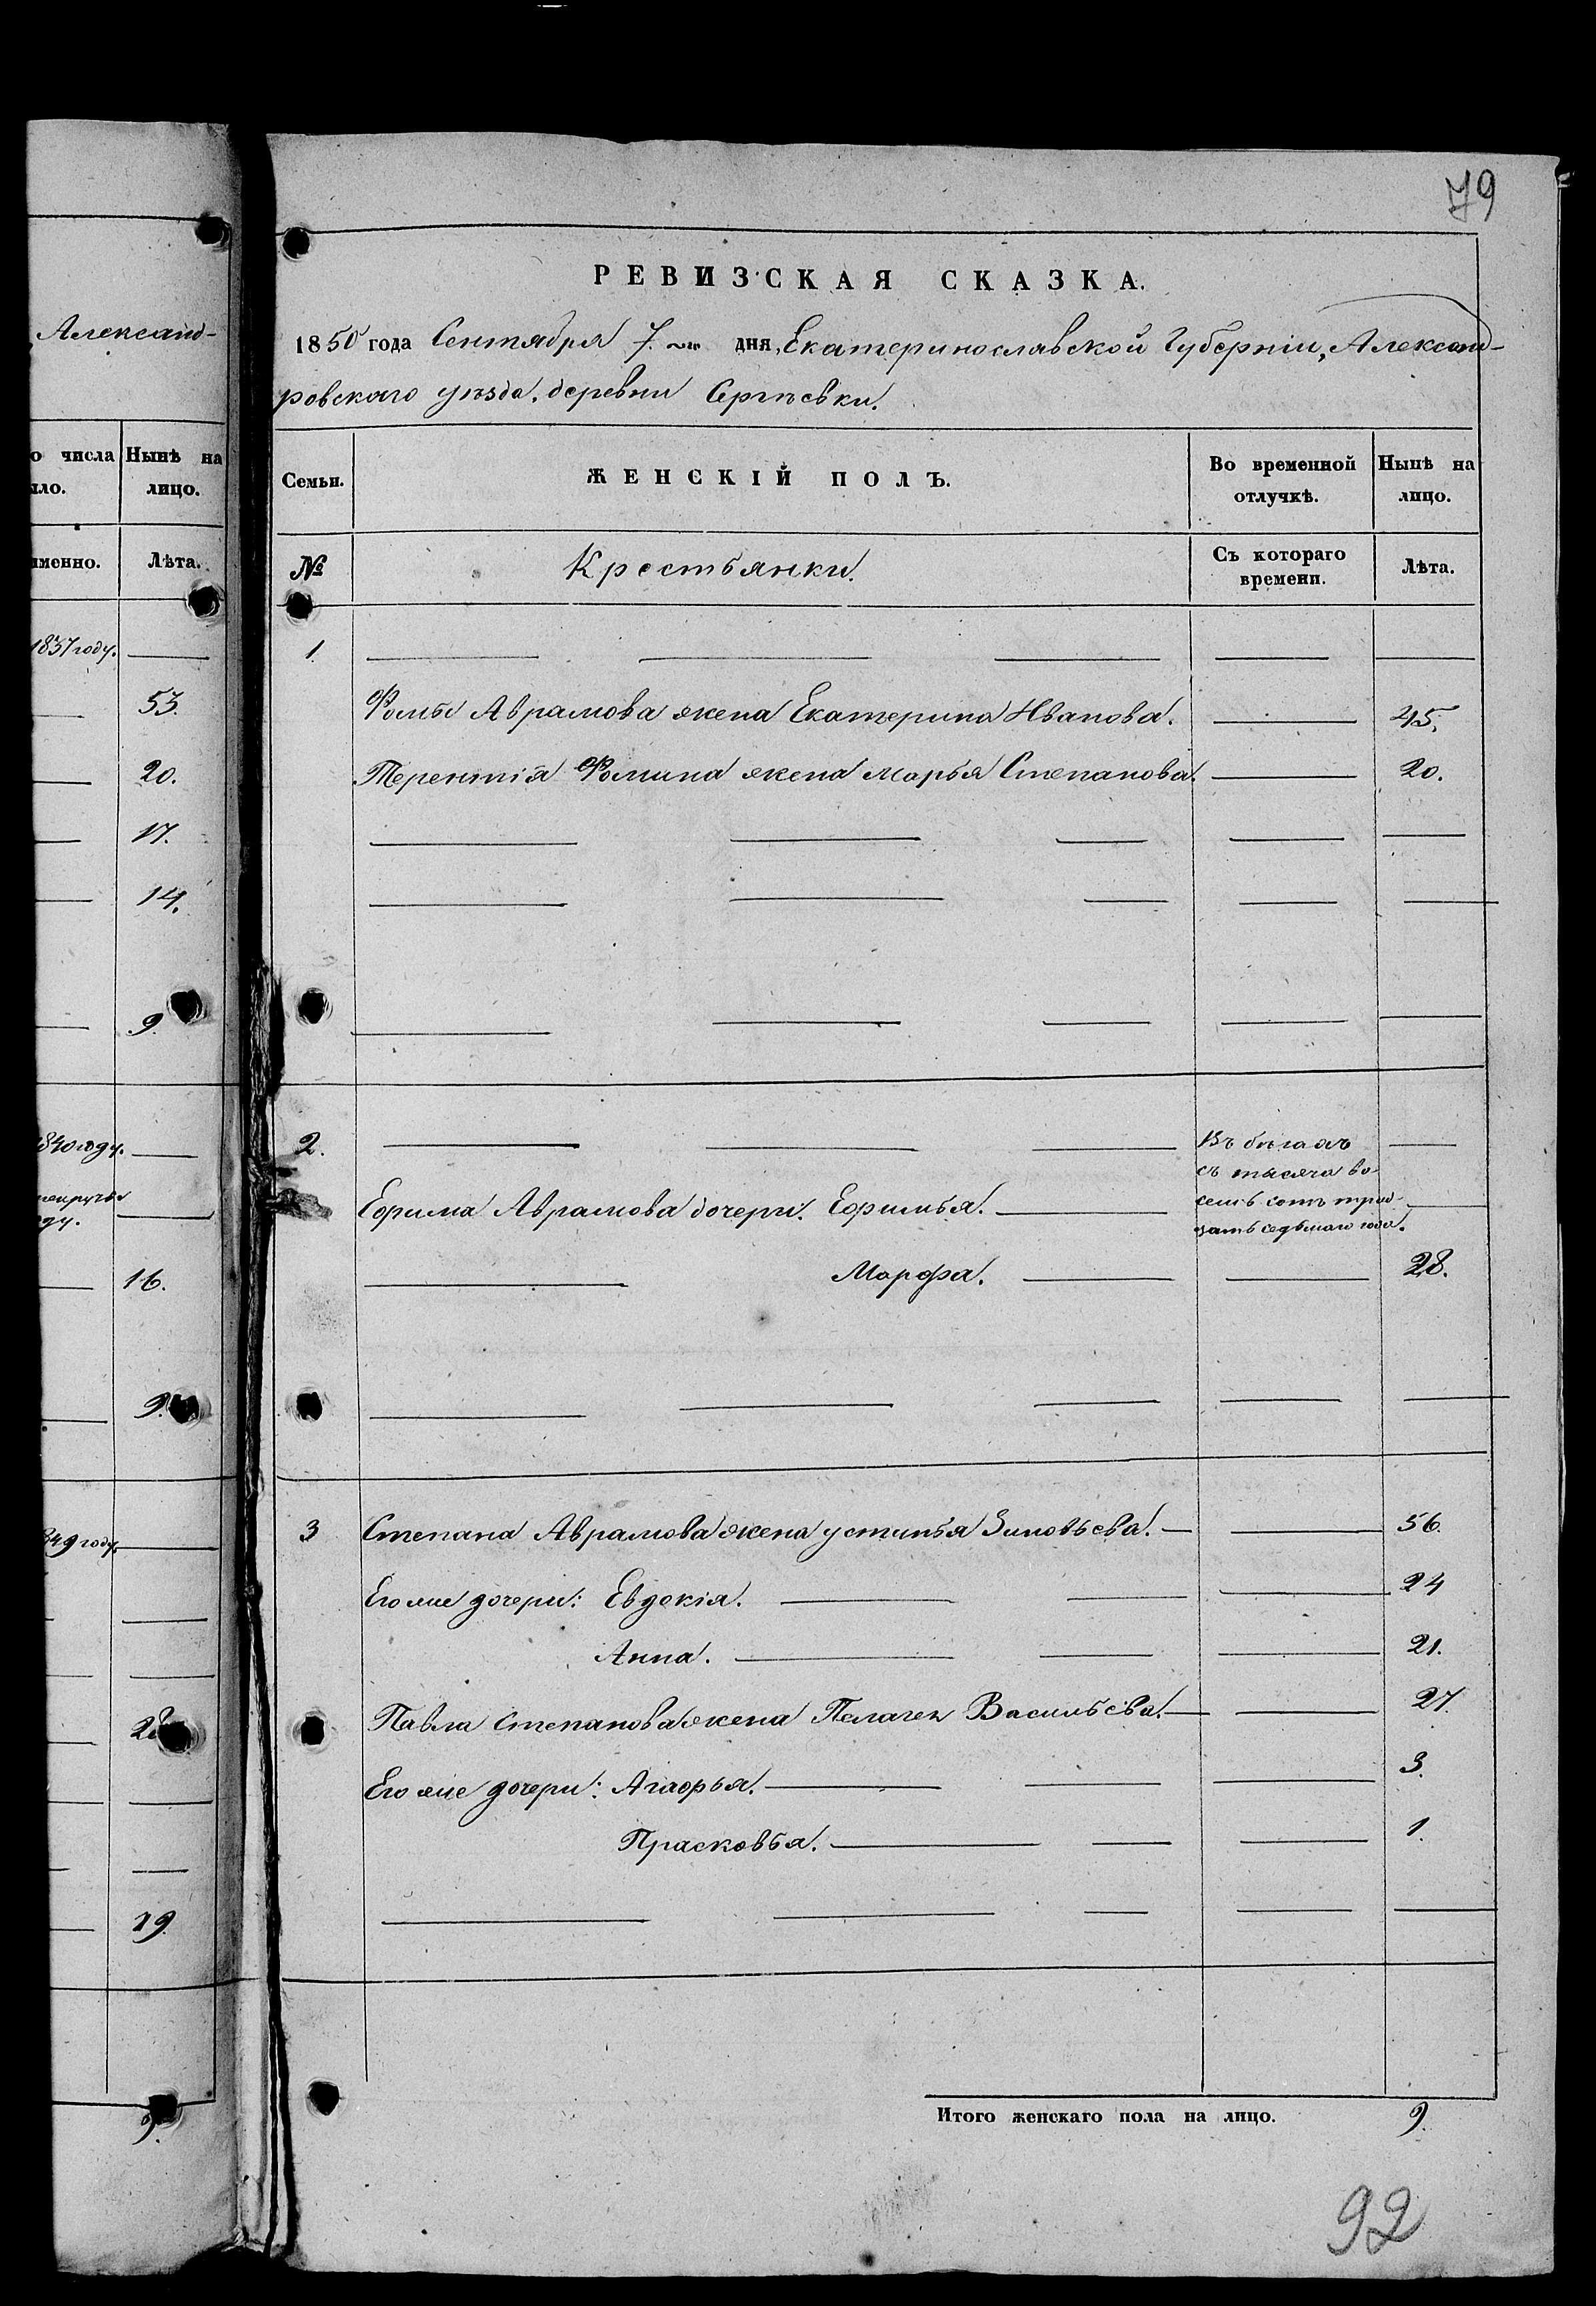 79
Александ-
о числа Нынѣ на
ыло. лицо.
именно. Лѣта.
1837 году.
53.
20.
17.
14.
9.
1840 году.
16.
9.
1849 году.
28
19
9.
РЕВИЗСКАЯ СКАЗКА.
1850 года Сентября 7. дня, Екатеринославской Губерніи, Александ-
ровскаго уѣзда, деревни Сергѣевки.
Семьи. ЖЕНСКІЙ ПОЛЪ. Во временной отлучкѣ. Нынѣ на лицо.
№ Крестьянки. Съ котораго времени. Лѣта.
1.
Фомы Аврамова жена Екатерина Иванова. 45.
Терентія Фомина жена Марья Степанова. 20.
2. Въ бѣгахъ
съ тысяча во-
семь сотъ трид-
Ефима Аврамова дочери: Ефимья.
цать седьмаго года.
Марфа. 28.
3 Степана Аврамова жена Устинья Зиновьева. 56.
Его же дочери: Евдокія. 24
Анна. 21.
Павла Степанова жена Пелагея Васильева. 27.
Его же дочери: Агафья. 3.
Прасковья. 1.
Итого женскаго пола на лицо. 9.
92